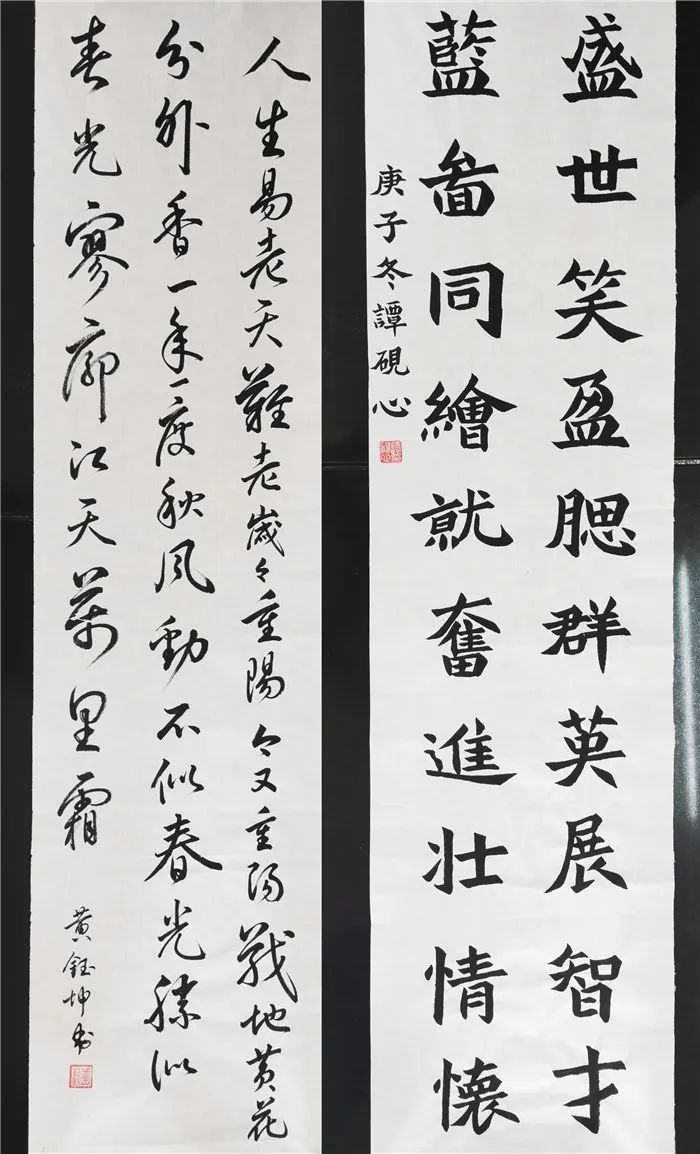 盛世笑盈腮群英展智才
藍啚同繪就奮進壯情懷
庚子冬譚硯心
人生易老天難老歲々重陽今又重陽戰地黄花
分外香一年一度秋風勁不似春光勝似
春光寥廓江天萬里霜
黄鈺坤書